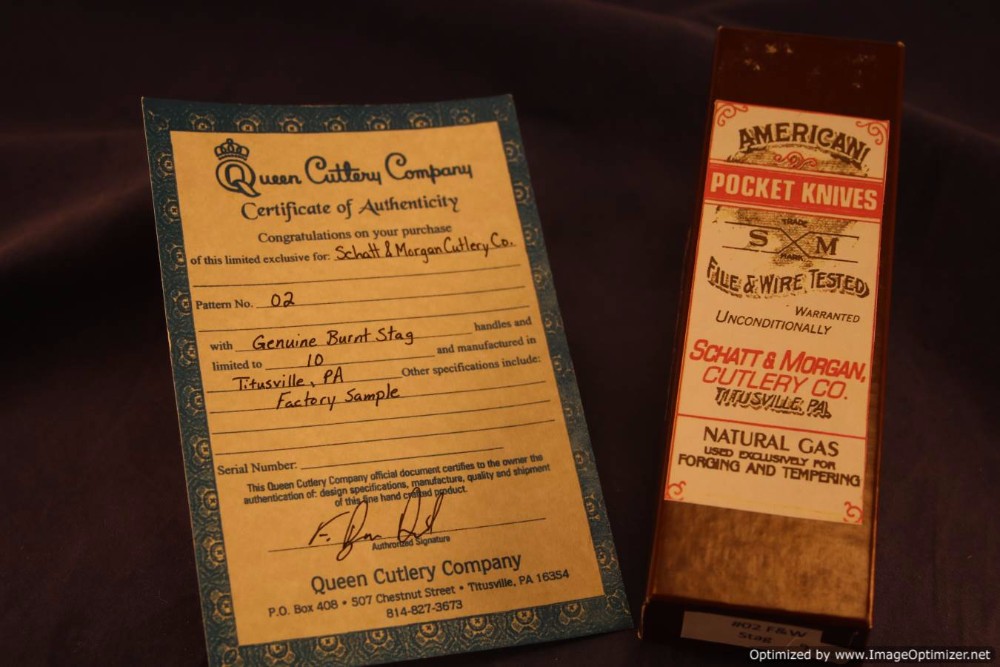 Queen Cutlery Company
Certificate of Authenticity
Congratulations on your purchase
of this limited exclusive for: Schatt & Morgan Cutlery Co.
Pattern No. 02
with Genuine Burnt Stag handles and
limited to 10 and manufactured in
Titusville, PA Other specifications include:
Factory Sample
Serial Number:
This Queen Cutlery Company official document certifies to the owner the
authentication of: design specifications, manufacture, quality and shipment
of this fine hand crafted product.
Authorized Signature
Queen Cutlery Company
P.O. Box 408 • 507 Chestnut Street • Titusville, PA 16354
814-827-3673
AMERICAN
POCKET KNIVES
TRADE
S M
MARK
FILE & WIRE TESTED
WARRANTED
UNCONDITIONALLY
SCHATT & MORGAN,
CUTLERY CO.
TITUSVILLE, PA.
NATURAL GAS
USED EXCLUSIVELY FOR
FORGING AND TEMPERING
#02 F&W
Stag
Optimized by www.ImageOptimizer.net